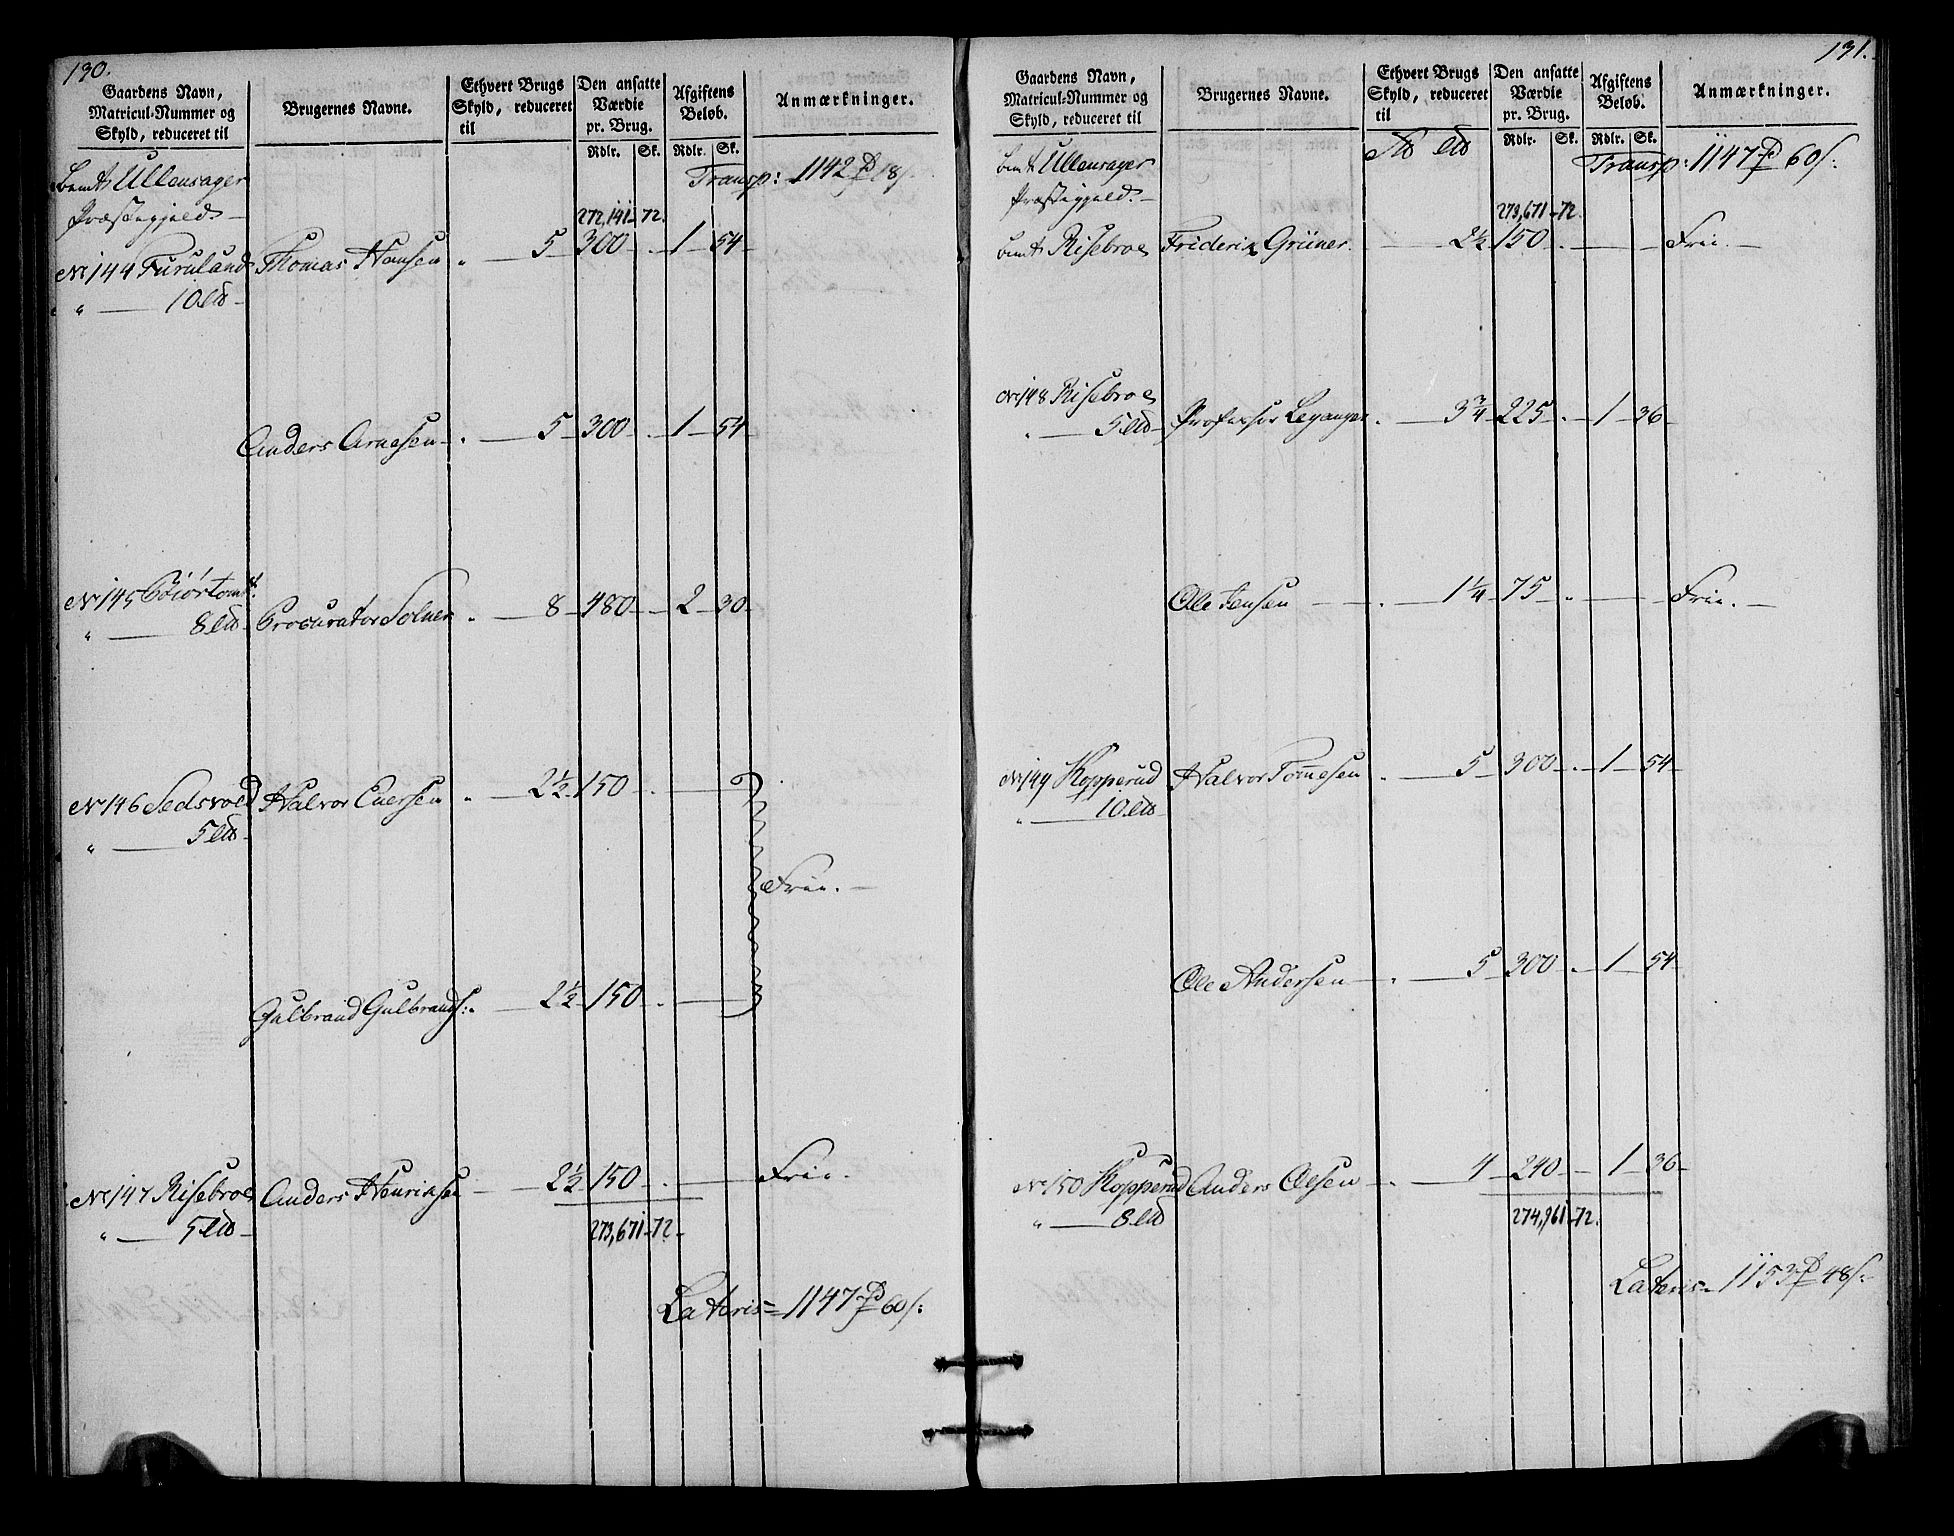 130.
Gaardens Navn, Matricul-Nummer og Skyld, reduceret til
Brugernes Navne.
Ethvert Brugs Skyld, reduceret til
Den ansatte Værdie pr. Brug.
Afgiftens Beløb.
Anmærkninger.
Rdlr. Sk. Rdlr. Sk.
Transp: 1142 18
Ullensager
Præstegjeld
272,141 72.
No 144 Furuland Thomas Hansen 5 300 1 54
" 10
Anders Arnesen 5 300 1 54
No 145
" 8 Procurator Solner 8 480 2 30
No 146 Sedsvold Halvor Eversen 2½ 150
" 5
Frie.
Gulbrand Gulbrands: 2½ 150
No 147 Risebroe Anders Henriksen 2½ 150 Frie.
" 5
273,671 72
Lateris 1147 60
131.
Gaardens Navn, Matricul-Nummer og Skyld, reduceret til
Brugernes Navne.
Ethvert Brugs Skyld, reduceret til
Den ansatte Værdie pr. Brug.
Afgiftens Beløb.
Anmærkninger.
Rdlr. Sk. Rdlr. Sk.
Transp: 1147 60
Ullensager
Præstegjeld.
273,671 72.
Risebroe Friderik Grüner 2½ 150 Frie.
No 148 Risebroe
5 Professor Leganger 3¾ 225 1 36
Ole Jensen 1¼ 75 Frie.
No 149 Kopperud Halvor Tomesen 5 300 1 54
" 10
Ole Andersen 5 300 1 54
No 150 Kopperud Anders Olesen 4 240 1 36
" 8
274,961 72.
Lateris 1153 48